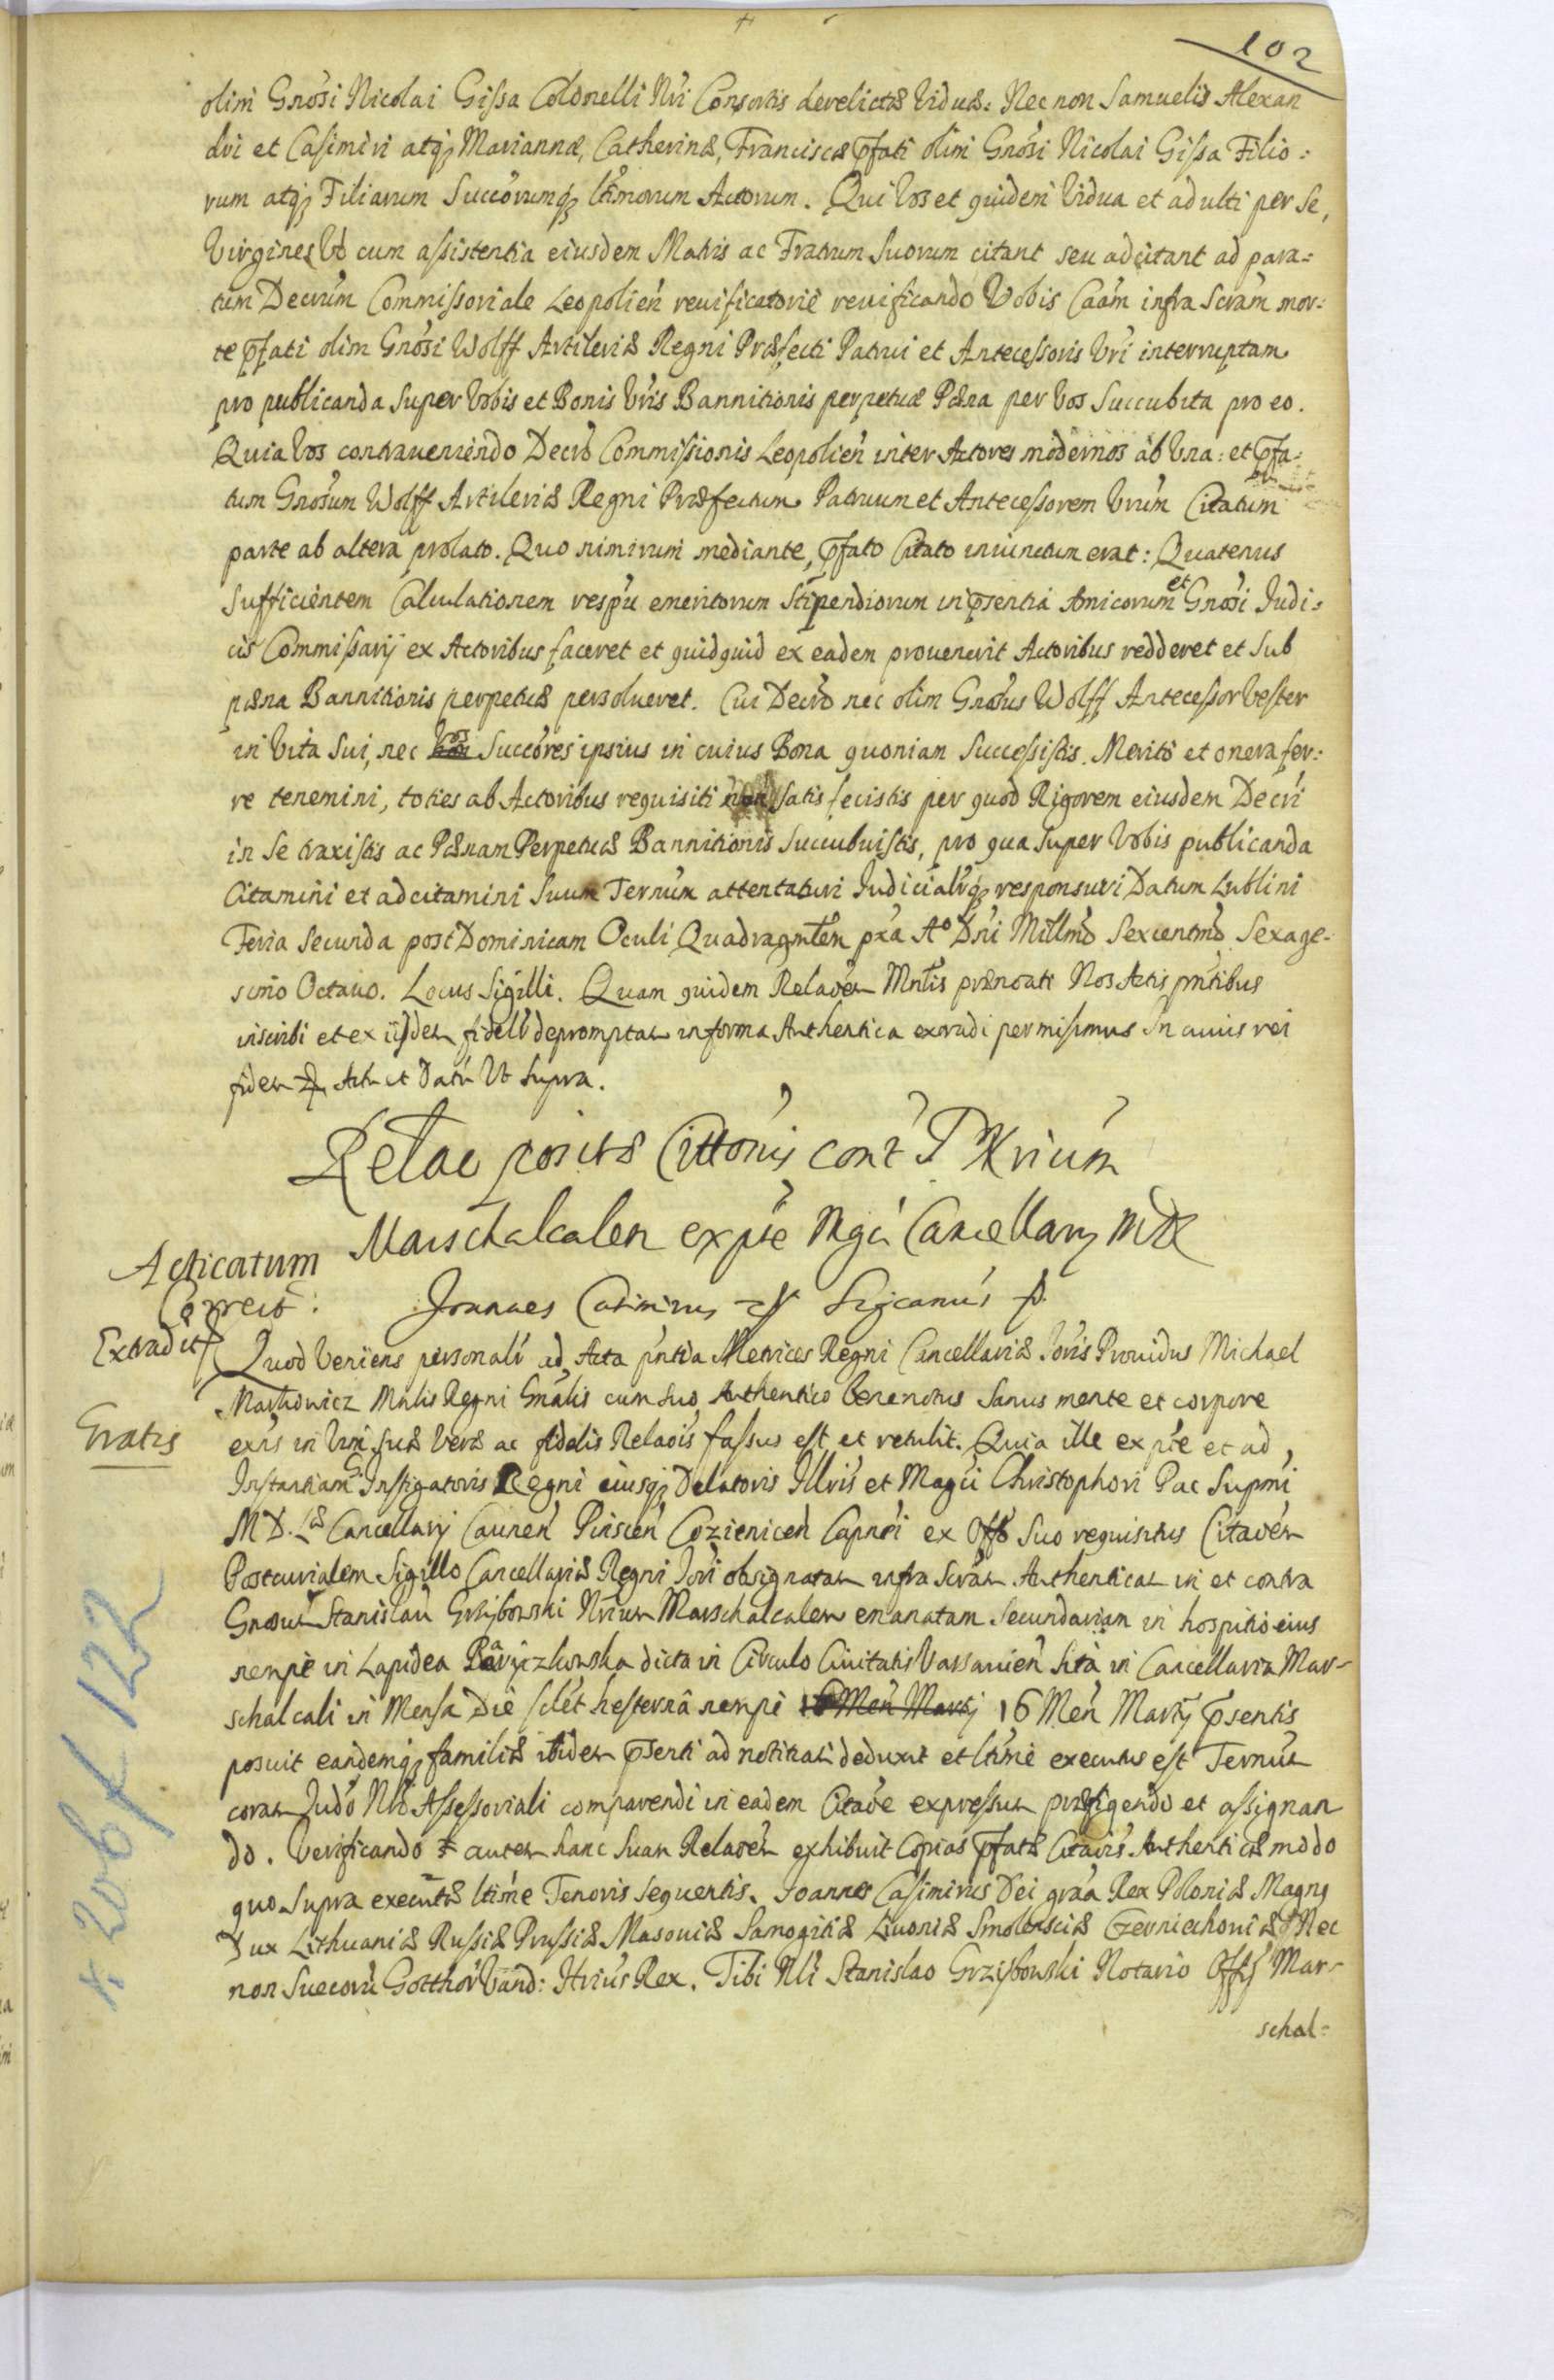 102
olim Gnosi Nicolai Gissa Colonelli Nri Consortis derelictæ Viduæ: Nec non Samuelis Alexan
dri et Casimiri atq Mariannæ, Catherinæ, Franciscæ pfati olim Gnosi Nicolai Gissa Filio:
rum atq Filiarum Succorumq ltimorum Actorum. Qui Vos et quidem Vidua et adulti per se,
Virgines Vo cum assistentia eiusdem Matris ac Fratrum Suorum citant seu adcitant ad para=
tum Decrum Commissoriale Leopolien reuificatorie reuificando Vobis Caam infra Scram mor:
te pfati olim Gnosi Wolff Artileriæ Regni Præfecti Patrui et Antecessoris Vri interruptam
pro publicanda Super Vobis et Bonis Vris Bannitionis perpetuæ Pæna per Vos Succubita pro eo.
Quia Vos contraueniendo Decro Commissionis Leopolien inter Actores modernos ab Vna: et pfa:
tum Gnosum Wolff Artileriæ Regni Præfectum Patruum et Antecessorem Vrum Citatum
parte ab altera prolato. Quo nimirum mediante, pfato Citato iniunctum erat: Quatenus
Sufficientem Calculationem respu emeritorum Stipendiorum in psentia Amicorum et Gnosi Judi:
cis Commissarij ex Actoribus faceret et quidquid ex eadem prouenerit Actoribus redderet et Sub
pæna Bannitionis perpetuæ persolueret. Cui Decro nec olim Gnosus Wolff Antecessor Vester
in Vita Sui, nec Vos Succores ipsius in cuius Bona quoniam Successistis. Merito et onera fer:
re tenemini, toties ab Actoribus requisiti non satis fecistis per quod Rigorem eiusdem Decri
in Se traxistis ac Pænam Perpetuæ Bannitionis Succubuistis, pro qua Super Vobis publicanda
Citamini et adcitamini Suum Ternum attentaturi Judicialrq responsuri Datum Lublini
Feria Secunda post Dominicam Oculi Quadragmlem pxa Ao Dni Millmo Sexcentmo Sexage-
simo Octauo. Locus Sigilli. Quam quidem Relaoem Mnlis prænoati Nos Actis pntibus
inscribi et ex iisdem fidelr depromptam in forma Authentica extradi permisimus In cuius rei
fidem Act et Dat Vt Supra.
Relao positæ Citton cont Nrium
Marschalcalem ex pte Mgci Cancellarij MDL
Acticatum
Joannes Casimirus
Correct:
Extradit
Quod Veniens personalr ad Acta pntia Metrices Regni Cancellariæ Joris Prouidus Michael
Markowicz Mnlis Regni Gnalis cum suo Authentico bene notus Sanus mente et corpore
exns in Vim suæ Veræ ac fidelis Relaois fassus est et retulit. Quia ille ex pte et ad
Gratis
Instantiam Instigatoris Regni eiusq Delatoris Illris et Magci Christophori Pac Supmi
M D. Læ Cancellarij Caunen Pinscen Cozienicen Capnei ex Offo Suo requisitus Citaoem
Postcurialem Sigillo Cancellariæ Regni Jori obsignatam infra Scram Authenticam in et contra
Gnosum Stanislau Grzybowski Nrium Marschalcalem emanatam Secundariam in hospitio eius
nempe in Lapidea Baryczkowska dicta in Circulo Ciuitatis Varsauien sita in Cancellaria Mar-
schalcali in Mensa Die sclet hesterna nempe 16 Men Martij 16 Men Martij psentis
posuit eandemq familiæ ibidem psenti ad notitiam deduxit et ltime executus est Ternum
coram Judo Nro Assessoriali comparendi in eadem Citaoe expressum præfigendo et assignan
do. Verificando autem hanc Suam Relaoem exhibuit Copias pfatæ Citaois Authenticæ modo
quo Supra executæ ltime Tenoris sequentis. Joannes Casimirus Dei graa Rex Poloniæ Magn
Dux Lithuaniæ Russiæ Prussiæ Masouiæ Samogitiæ Liuoniæ Smolensciæ Czerniechouiæ Nec
non Suecoru Gotthor Vand: Hrius Rex. Tibi Nli Stanislao Grzybowski Notario Offij Mar-
schal=
k. 206 f 122